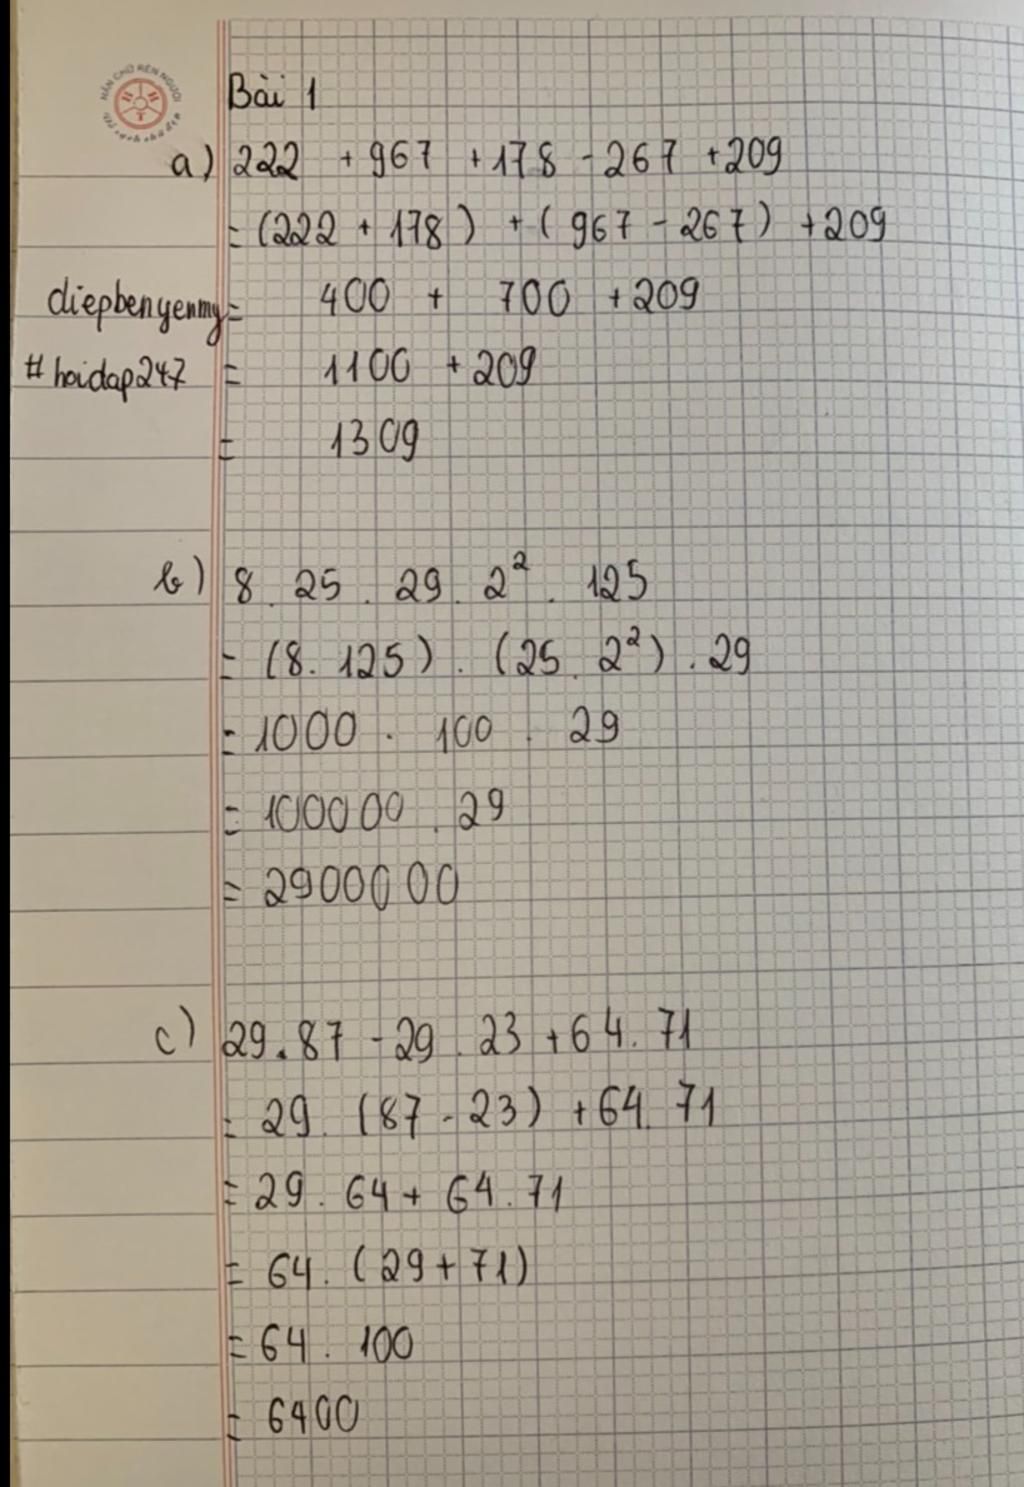 NẮN CHỮ RÈN NGƯỜI
Bài 1
a) 222 + 967 + 178 - 267 + 209
= (222 + 178) + (967 - 267) + 209
diepbenyenmy = 400 + 700 + 209
# hoidap247 = 1100 + 209
= 1309
b) 8 . 25 . 29 . 2² . 125
= (8 . 125) . (25 . 2²) . 29
= 1000 . 100 . 29
= 100000 . 29
= 2900000
c) 29 . 87 - 29 . 23 + 64 . 71
= 29 . (87 - 23) + 64 . 71
= 29 . 64 + 64 . 71
= 64 . (29 + 71)
= 64 . 100
= 6400